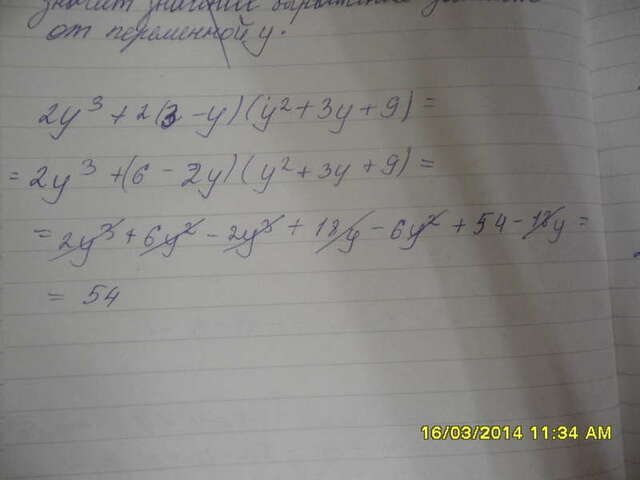 значит значение выражение
от переменной y.
2y³ + 2(3 - y)(y² + 3y + 9) =
= 2y³ + (6 - 2y)(y² + 3y + 9) =
= 2y³ + 6y² - 2y³ + 18y - 6y² + 54 - 18y =
= 54
16/03/2014 11:34 AM